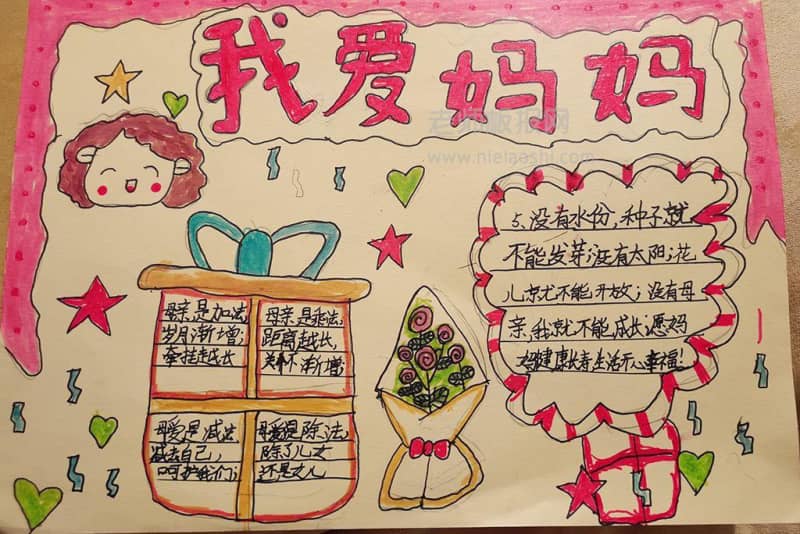 我爱妈妈
老师板报网
www.nielaoshi.com
母亲是加法,
岁月渐增;
牵挂越长
母亲是乘法,
距离越长,
关怀渐增;
母爱是减法,
减去自己,
呵护我们;
母爱是除法,
除了儿女
还是女儿
5、没有水份,种子就
不能发芽;没有太阳;花
儿就不能开放;没有母
亲,我就不能成长;愿妈
妈健康长寿生活开心幸福!